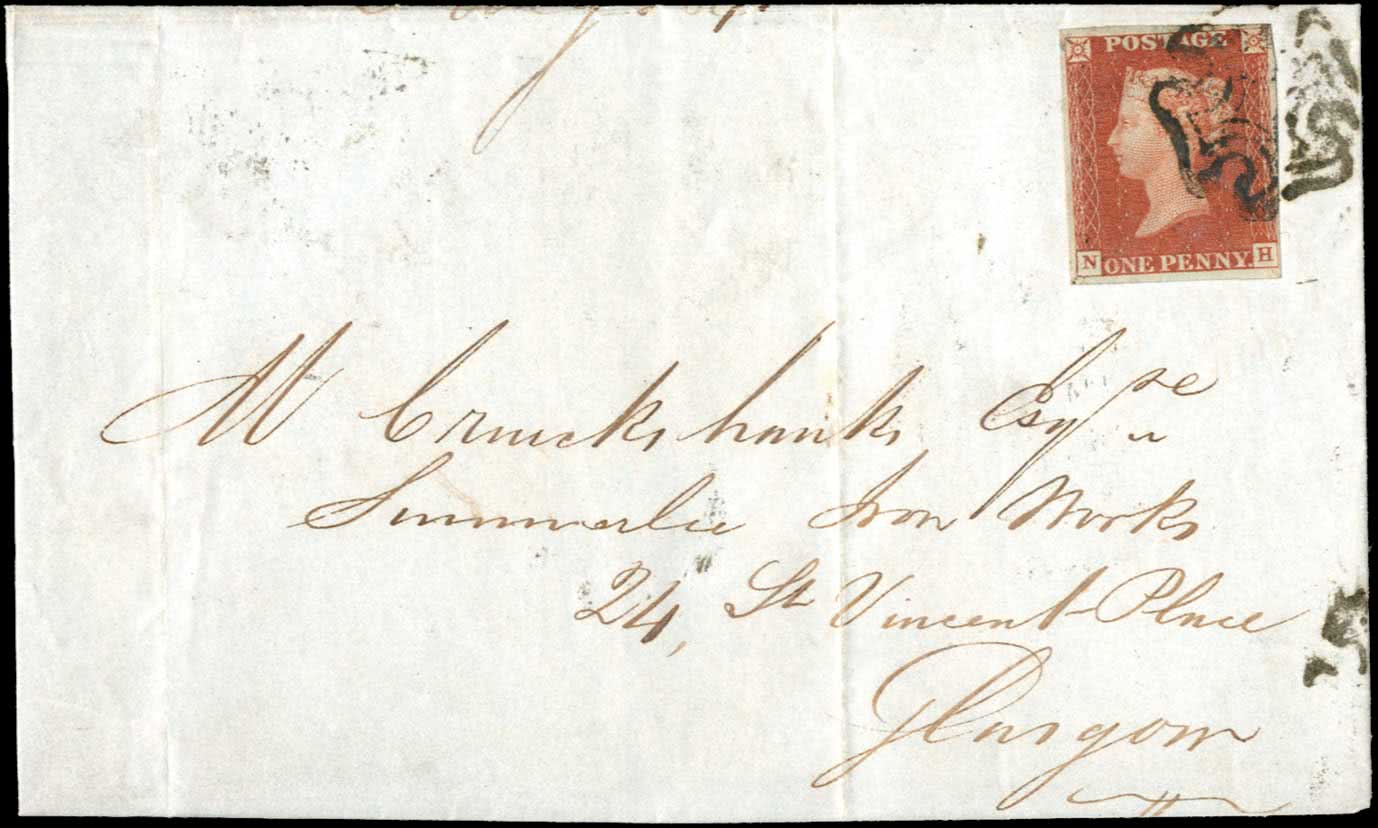 POSTAGE
N ONE PENNY. H
W Cruickshanks Esqre
Summerlee Iron Works
24, St Vincent Place
Glasgow